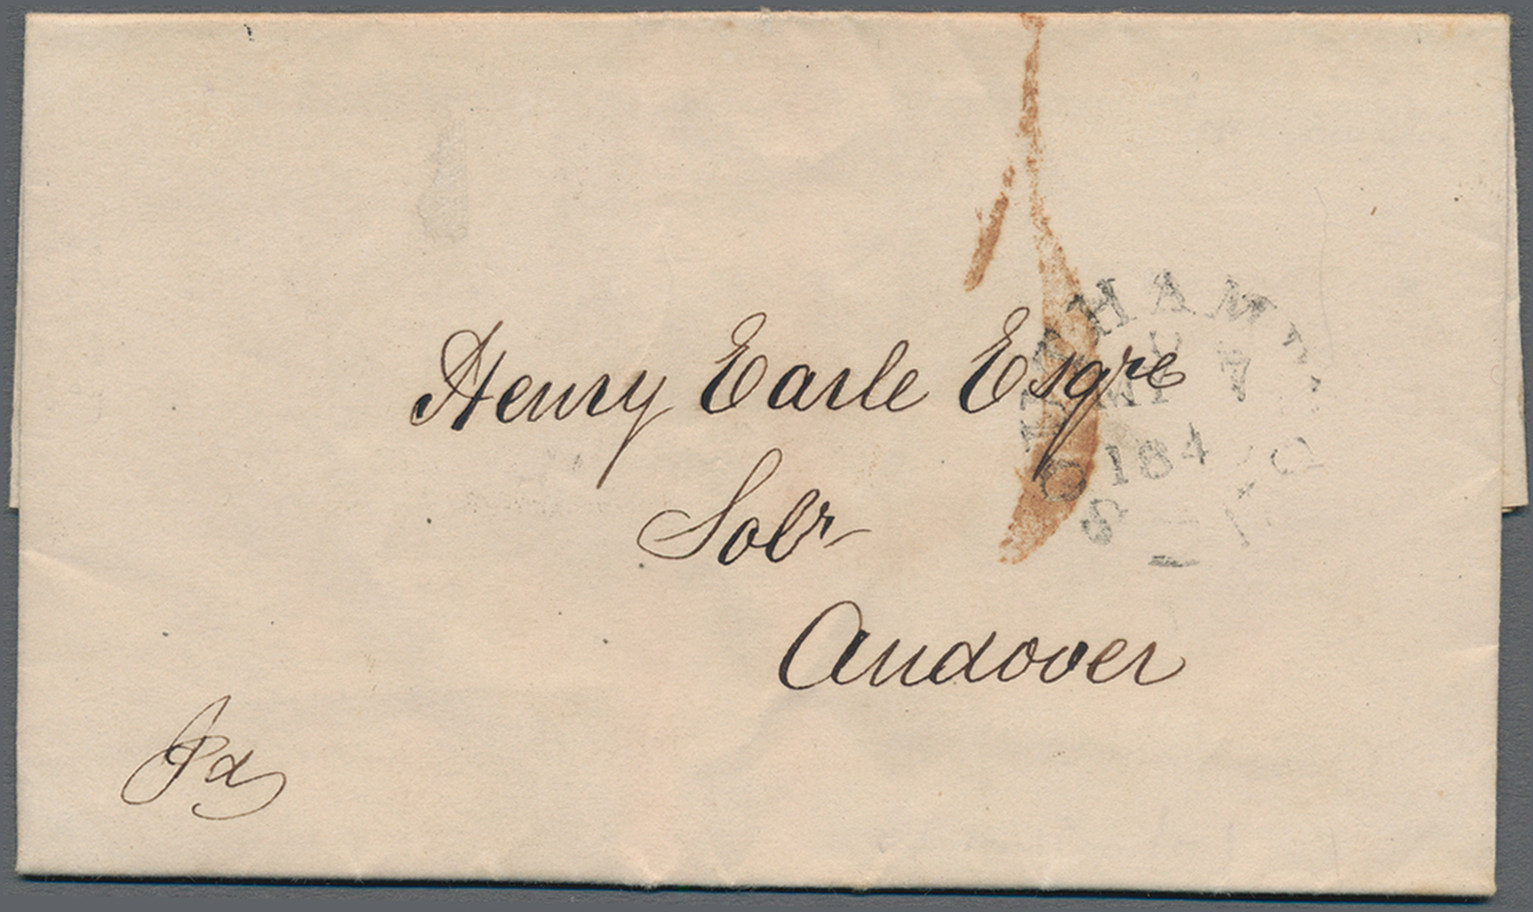 Henry Earle Esqre
Solr
Andover
Pd
184